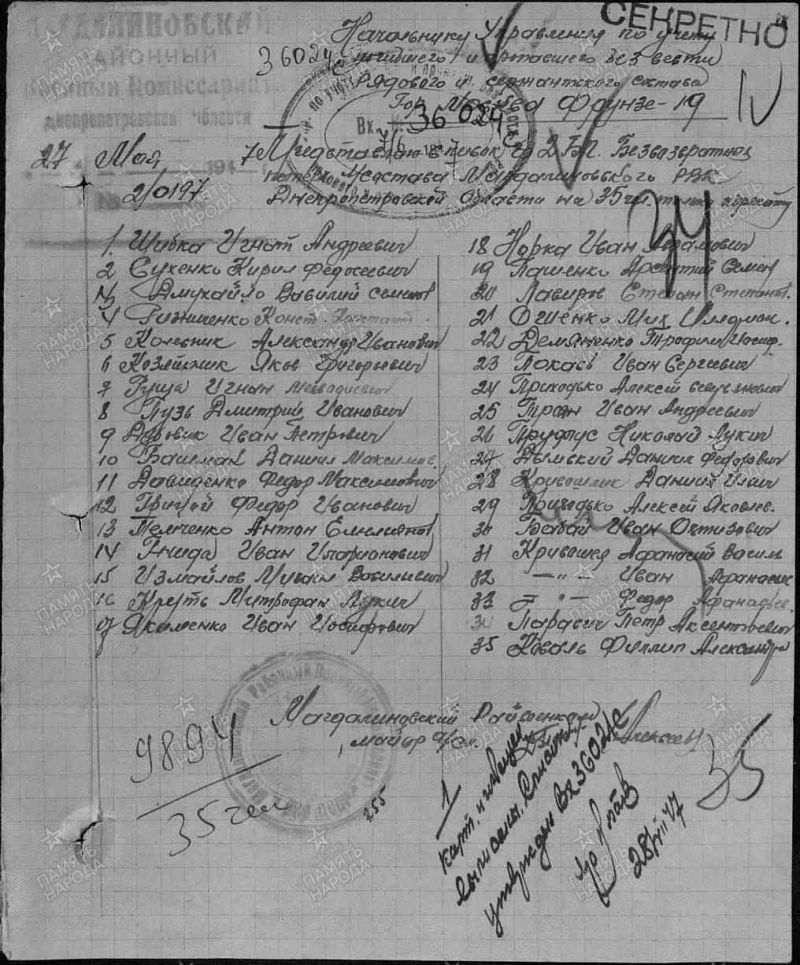 СЕКРЕТНО
МАГДАЛИНОВСКИЙ
РАЙОННЫЙ
Военный Комиссариат
Днепропетровской области
Начальнику Управления по учету
36024с погибшего и пропавшего без вести
рядового и сержантского состава
Гор. Москва Фрунзе-19
IV
Вх. 36024с
27 Мая 1947
2/0197
Представляю список
Магдалиновского РВК
Днепропетровской Области на 35 чел.
34
1. Шибка Игнат Андреевич
2 Сухенко Кирил Федосеевич
3 Дмухайло Василий Семенов
4 Резниченко Конст.
5 Колесник Александр Иванович
6 Хозяйник Яков Григорьевич
7 Гуща Игнат
8 Пузь Дмитрий Иванович
9 Дубовик Иван Петрович
10 Башман Даниил Максимов.
11 Давиденко Федор Максимович
12 Грицай Федор Иванович
13 Темченко Антон Емельянов
14 Гнида Иван Иларионович
15 Измайлов Михаил Васильевич
16 Круть Митрофан Лукич
17 Якименко Иван Иосифович
18 Норка Иван Абрамович
19 Пашенко Арсентий Семен
20 Лавиров Степан Степанов.
21 Ошенко Мих.
22 Демяненко Трофим Иосиф.
23 Покась Иван Сергеевич
24 Приходько Алексей
25 Тран Иван Андреевич
26 Пруфтус Николай Лукич
27 Дымский Даниил Федорович
28 Кривошлык Даниил
29 Приходько Алексей Яковлев.
30 Бабай Иван
31 Кривошея Афанасий Василь
32 —"— Иван Афанасьев
33 —"— Федор Афанасьев.
34 Парасич Петр Аксентьевич
35 Коваль Филлип Александр
Магдалиновский Райвоенком
майор Алексеев
9894
35 чел
255
1
карт. и извещен.
выписаны. Список
утвержден Вх 36024с
28/VII 47
35
ПАМЯТЬ НАРОДА